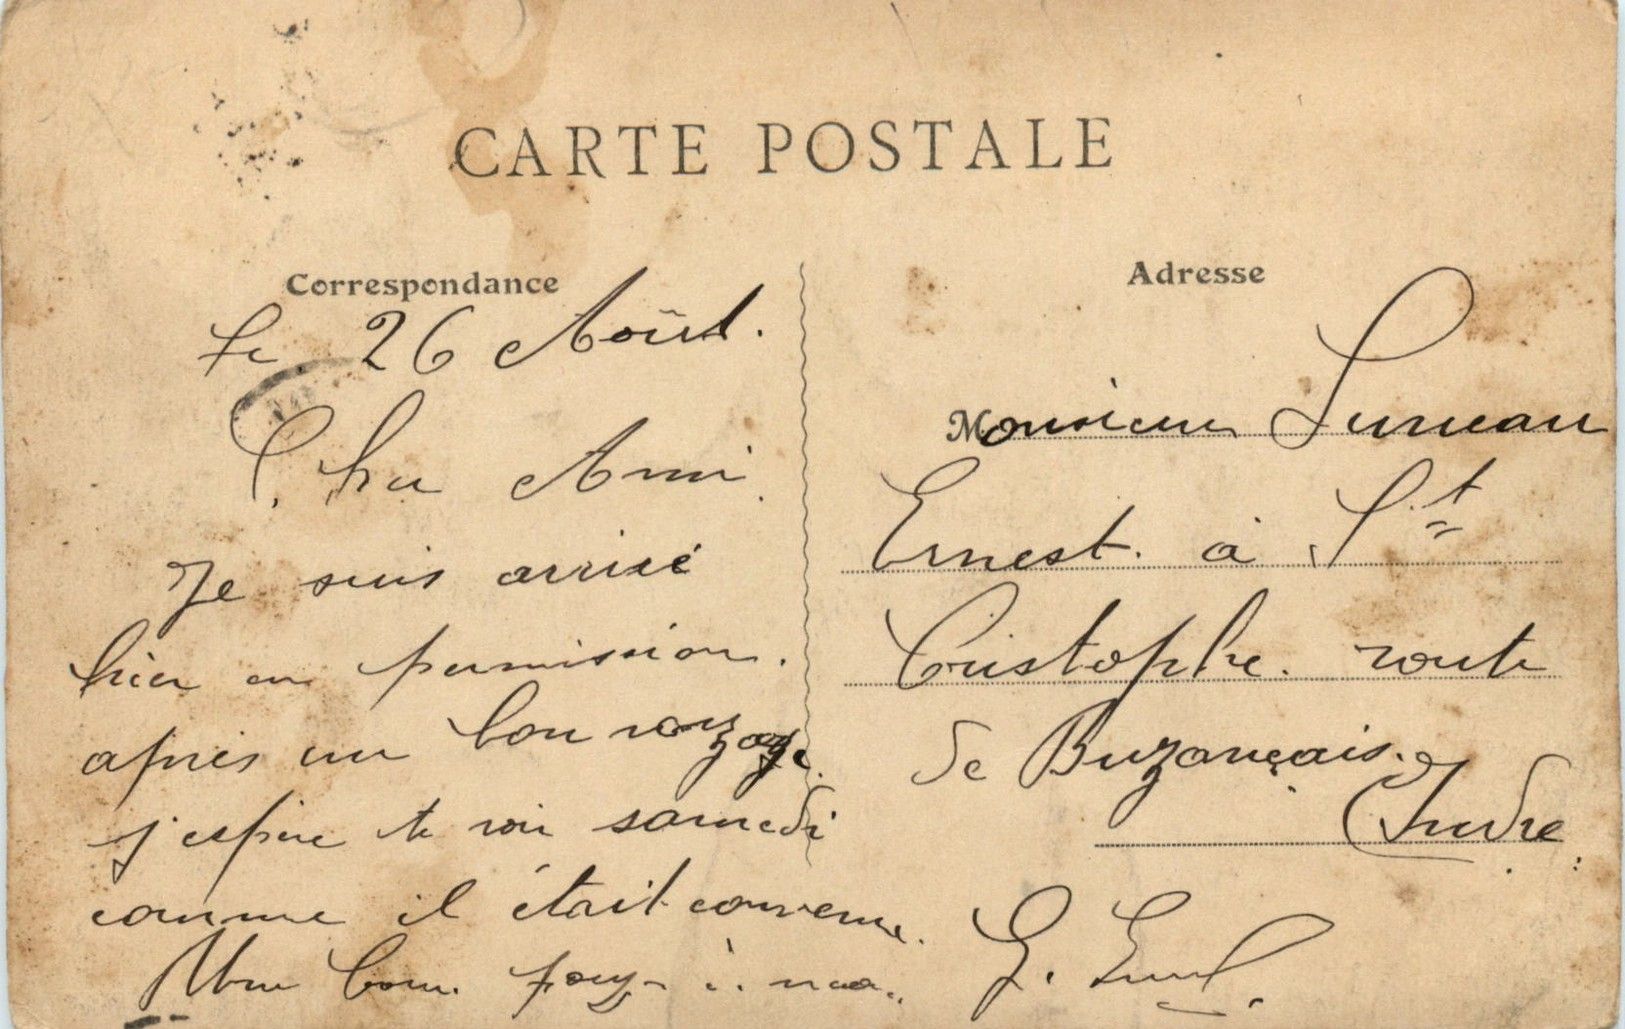 CARTE POSTALE
Correspondance
Le 26 Août.
Cher Ami
Je suis arrivé
hier en permission.
après un bon voyage.
j'espère te voir samedi
comme il était convenu.
bon
Adresse
Monsieur Luneau
Ernest. à St
Cristophe. route
de Buzançais.
Indre